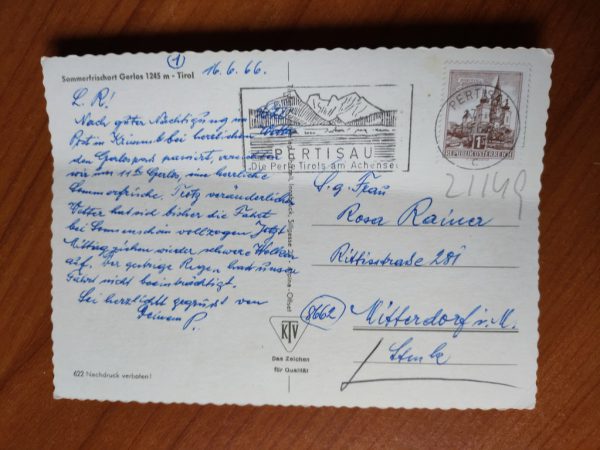 1
Sommerfrischort Gerlos 1245 m - Tirol
16.6.66.
L. R!
Nach guter Nächtigung im
Post in Krimml bei herrlichem Wetter
den Gerlospaß passiert, erreichten
wir um 11h Gerlos, eine herrliche
Sommerfrische. Trotz veränderlichem
Wetter hat sich bisher die Fahrt
bei Sonnenschein vollzogen. Jetzt
Mittag ziehen wieder schwere Wolken
auf. Der gestrige Regen hat unsere
Fahrt nicht beeinträchtigt.
Sei herzlichst gegrüßt von
Deinem P.
622 Nachdruck verboten!
PERTISAU
Die Perle Tirols am Achensee
PERTISAU
1S
REPUBLIK ÖSTERREICH
21149
S. g. Frau
Rosa Rainer
Rittisstraße 281
8662
Mitterdorf i. M.
Stmk
KTV
Das Zeichen
für Qualität